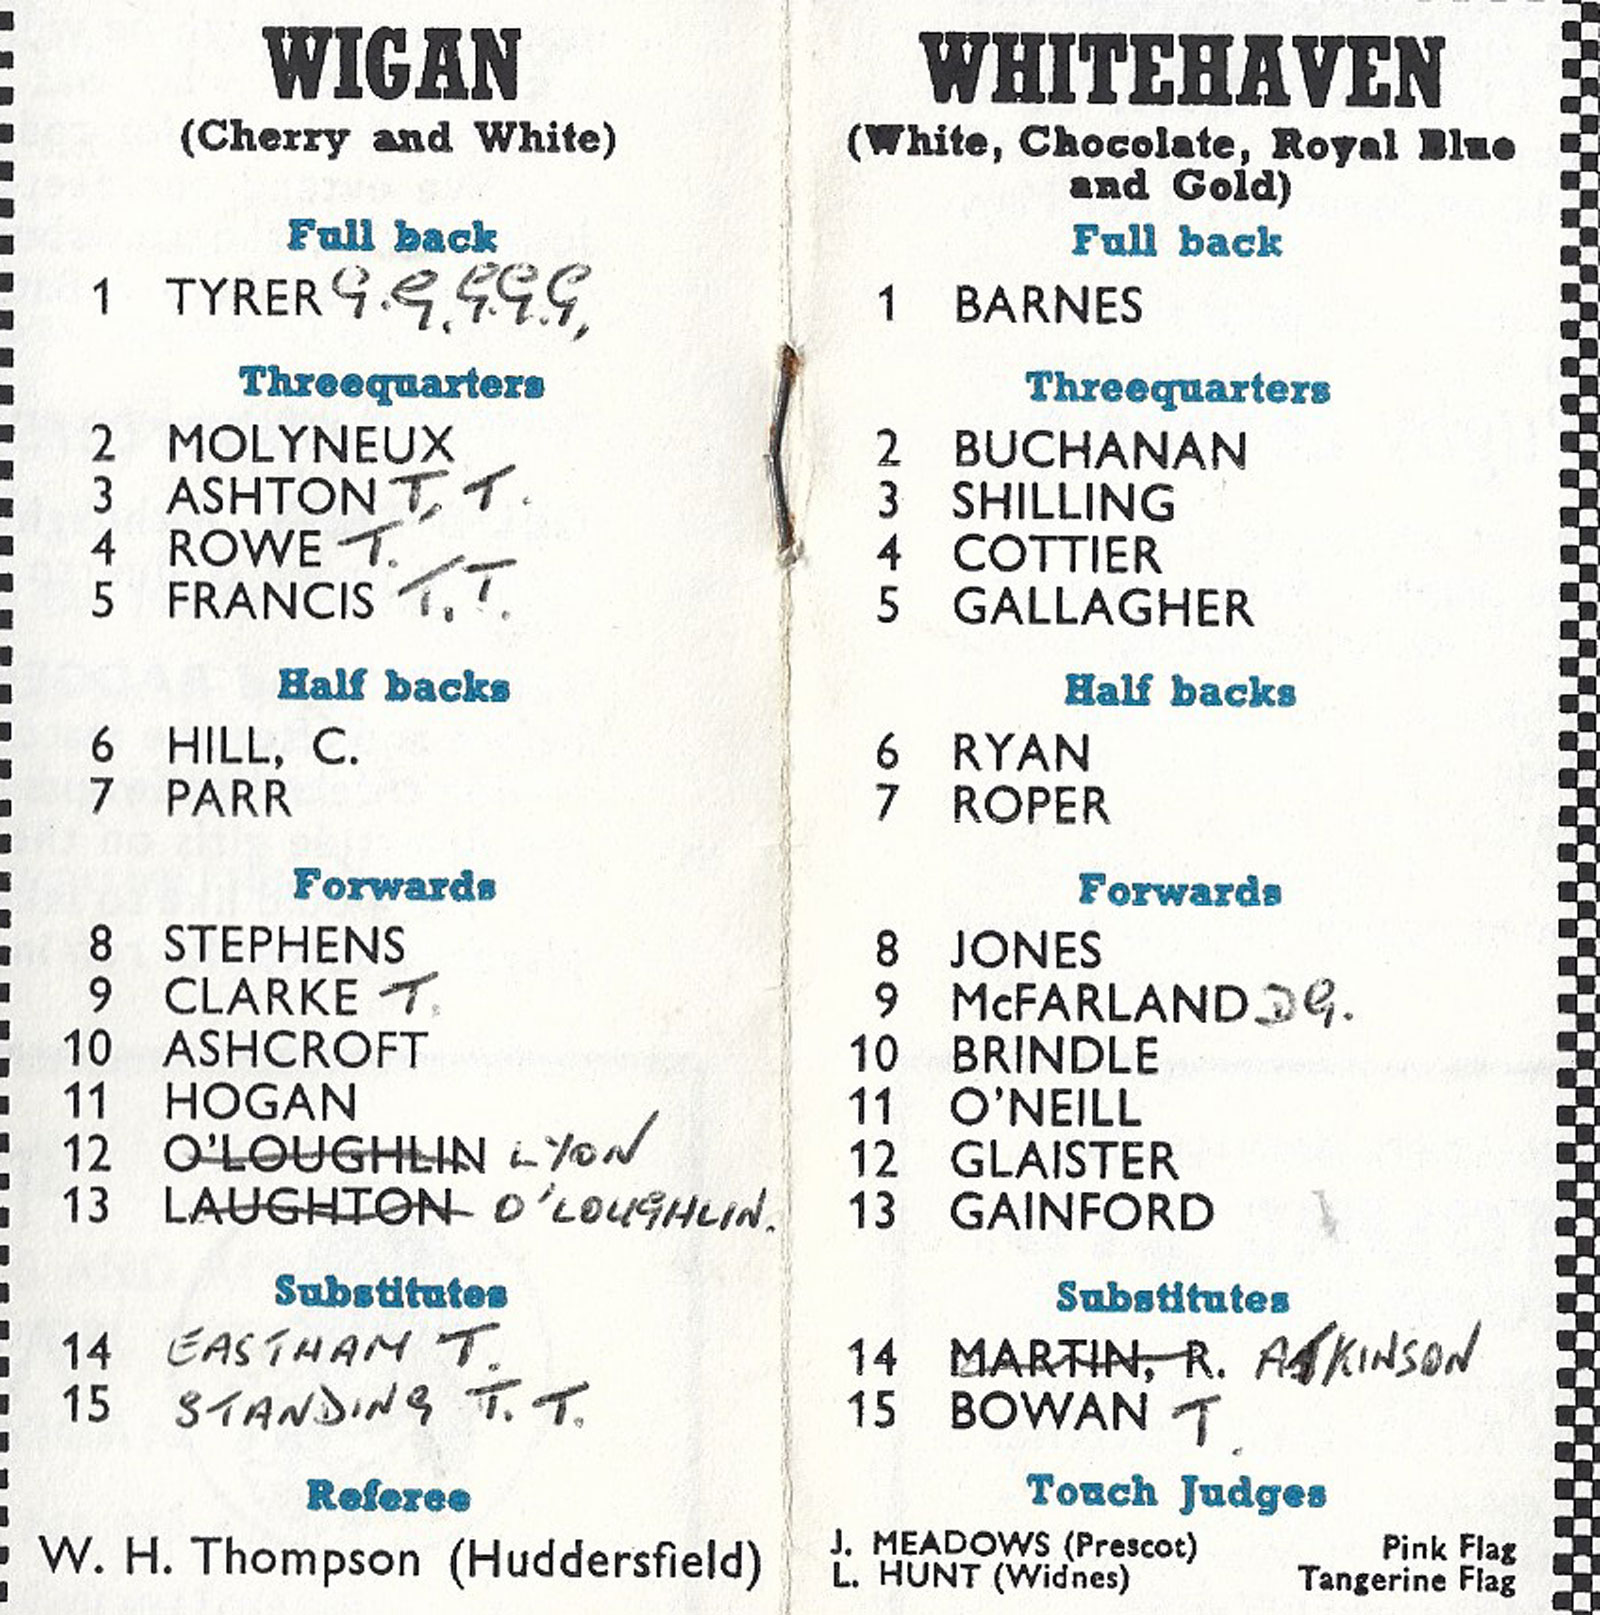 WIGAN
(Cherry and White)
Full back
1 TYRER G.G.G.G.G.
Threequarters
2 MOLYNEUX
3 ASHTON T, T.
4 ROWE T.
5 FRANCIS T.T.
Half backs
6 HILL, C.
7 PARR
Forwards
8 STEPHENS
9 CLARKE T.
10 ASHCROFT
11 HOGAN
12 O'LOUGHLIN LYON
13 LAUGHTON O'LOUGHLIN.
Substitutes
14 EASTHAM T.
15 STANDING T. T.
Referee
W. H. Thompson (Huddersfield)
WHITEHAVEN
(White, Chocolate, Royal Blue
and Gold)
Full back
1 BARNES
Threequarters
2 BUCHANAN
3 SHILLING
4 COTTIER
5 GALLAGHER
Half backs
6 RYAN
7 ROPER
Forwards
8 JONES
9 McFARLAND DG.
10 BRINDLE
11 O'NEILL
12 GLAISTER
13 GAINFORD
Substitutes
14 MARTIN, R. ATKINSON
15 BOWAN T.
Touch Judges
J. MEADOWS (Prescot) Pink Flag
L. HUNT (Widnes) Tangerine Flag